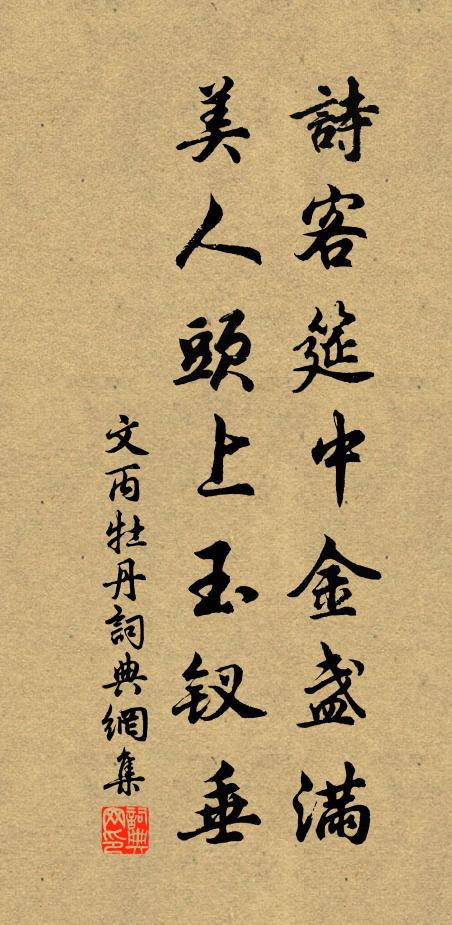 詩客筵中金盞滿
美人頭上玉釵垂
文丙牡丹詞典網集
詞典网印